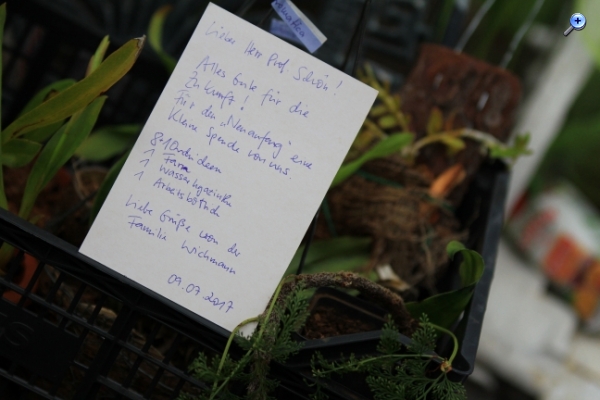 Lieber Herr Prof. Schön!
Alles Gute für die
Zukunft!
Für den „Neuanfang" eine
kleine Spende von uns.
8-10 Orchideen
1 Farn
1 Wasserhyazinthe
1 Arbeitsbstnd
Liebe Grüße von der
Familie Wichmann
09.07.2017